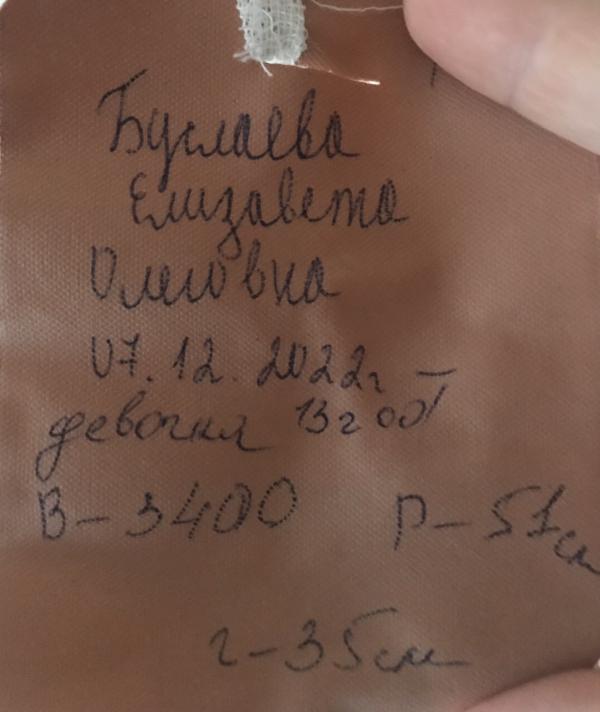 Буслаева
Елизавета
Олеговна
07.12.2022г
девочка 13ч 00
В - 3400 Р - 51см
г - 35см